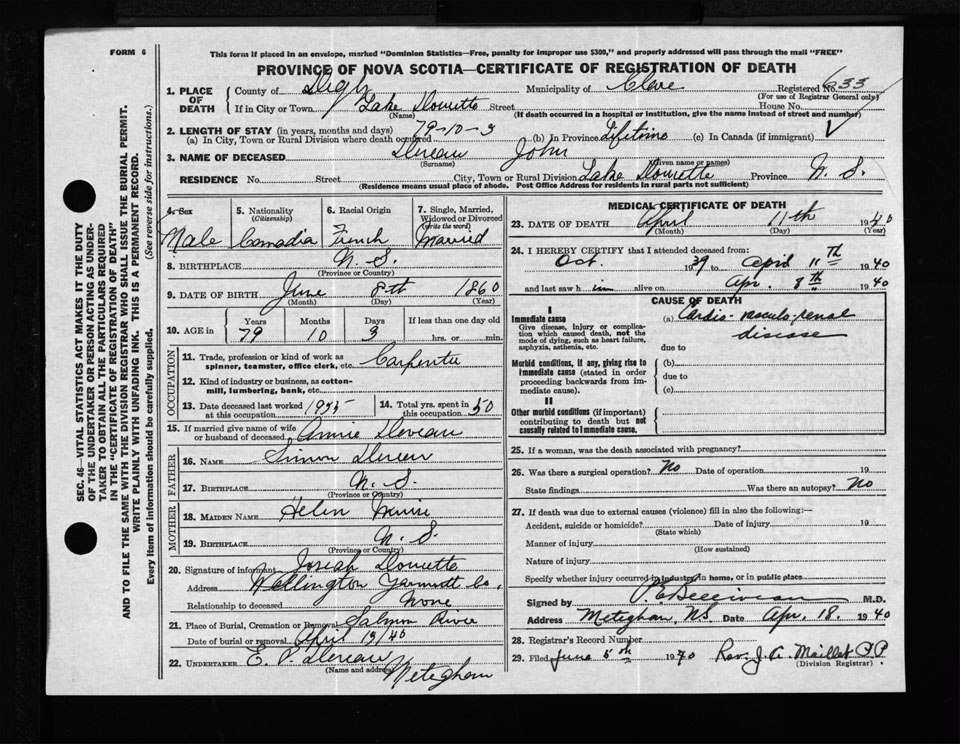 FORM 6
This form if placed in an envelope, marked "Dominion Statistics—Free, penalty for improper use $300," and properly addressed will pass through the mail "FREE"
PROVINCE OF NOVA SCOTIA—CERTIFICATE OF REGISTRATION OF DEATH
1. PLACE OF DEATH
County of Digby Municipality of Clare Registered No. 633
(For use of Registrar General only)
If in City or Town Lake Doucette Street House No.
(Name) (If death occurred in a hospital or institution, give the name instead of street and number)
2. LENGTH OF STAY (in years, months and days)
(a) In City, Town or Rural Division where death occurred 79-10-3 (b) In Province Lifetime (c) In Canada (if immigrant)
3. NAME OF DECEASED Deveau John
(Surname) (Given name or names)
RESIDENCE No. Street City, Town or Rural Division Lake Doucette Province N. S.
(Residence means usual place of abode. Post Office Address for residents in rural parts not sufficient)
4. Sex Male
5. Nationality (Citizenship) Canadia
6. Racial Origin French
7. Single, Married, Widowed or Divorced (write the word) Married
8. BIRTHPLACE N. S.
(Province or Country)
9. DATE OF BIRTH June 8th 1860
(Month) (Day) (Year)
10. AGE in Years 79 Months 10 Days 3 If less than one day old hrs. or min.
OCCUPATION
11. Trade, profession or kind of work as spinner, teamster, office clerk, etc. Carpenter
12. Kind of industry or business, as cotton-mill, lumbering, bank, etc.
13. Date deceased last worked at this occupation
14. Total yrs. spent in this occupation 50
15. If married give name of wife or husband of deceased Annie Deveau
FATHER
16. NAME Simon Deveau
17. BIRTHPLACE N. S.
(Province or Country)
MOTHER
18. MAIDEN NAME Helen
19. BIRTHPLACE N. S.
(Province or Country)
20. Signature of informant Josiah Doucette
Address Wellington Yarmouth Co.
Relationship to deceased None
21. Place of Burial, Cremation or Removal Salmon River
Date of burial or removal April 13/40
22. UNDERTAKER E. P. Deveau Meteghan
(Name and address)
MEDICAL CERTIFICATE OF DEATH
23. DATE OF DEATH April 11th 1940
(Month) (Day) (Year)
24. I HEREBY CERTIFY that I attended deceased from:
Oct. 1939 to April 11th 1940
and last saw him alive on Apr. 8th 1940
CAUSE OF DEATH
I
Immediate cause
Give disease, injury or complication which caused death, not the mode of dying, such as heart failure, asphyxia, asthenia, etc.
(a) Cardio-vasculo-renal disease
due to
Morbid conditions, if any, giving rise to immediate cause (stated in order proceeding backwards from immediate cause).
(b)
due to
(c)
II
Other morbid conditions (if important) contributing to death but not causally related to immediate cause.
25. If a woman, was the death associated with pregnancy?
26. Was there a surgical operation? No Date of operation 19
State findings Was there an autopsy? No
27. If death was due to external causes (violence) fill in also the following:—
Accident, suicide or homicide? Date of injury 19
(State which)
Manner of injury
(How sustained)
Nature of injury
Specify whether injury occurred in industry, in home, or in public place
Signed by P. E. Belliveau M.D.
Address Meteghan, N.S. Date Apr. 18 1940
28. Registrar's Record Number
29. Filed June 5th 1940 Rev. J. A. Maillet P.P.
(Division Registrar)
SEC. 46—VITAL STATISTICS ACT MAKES IT THE DUTY
OF THE UNDERTAKER OR PERSON ACTING AS UNDER-
TAKER TO OBTAIN ALL THE PARTICULARS REQUIRED
IN THE "CERTIFICATE OF REGISTRATION OF DEATH"
AND TO FILE THE SAME WITH THE DIVISION REGISTRAR WHO SHALL ISSUE THE BURIAL PERMIT.
WRITE PLAINLY WITH UNFADING INK. THIS IS A PERMANENT RECORD.
Every item of information should be carefully supplied. (See reverse side for instructions.)